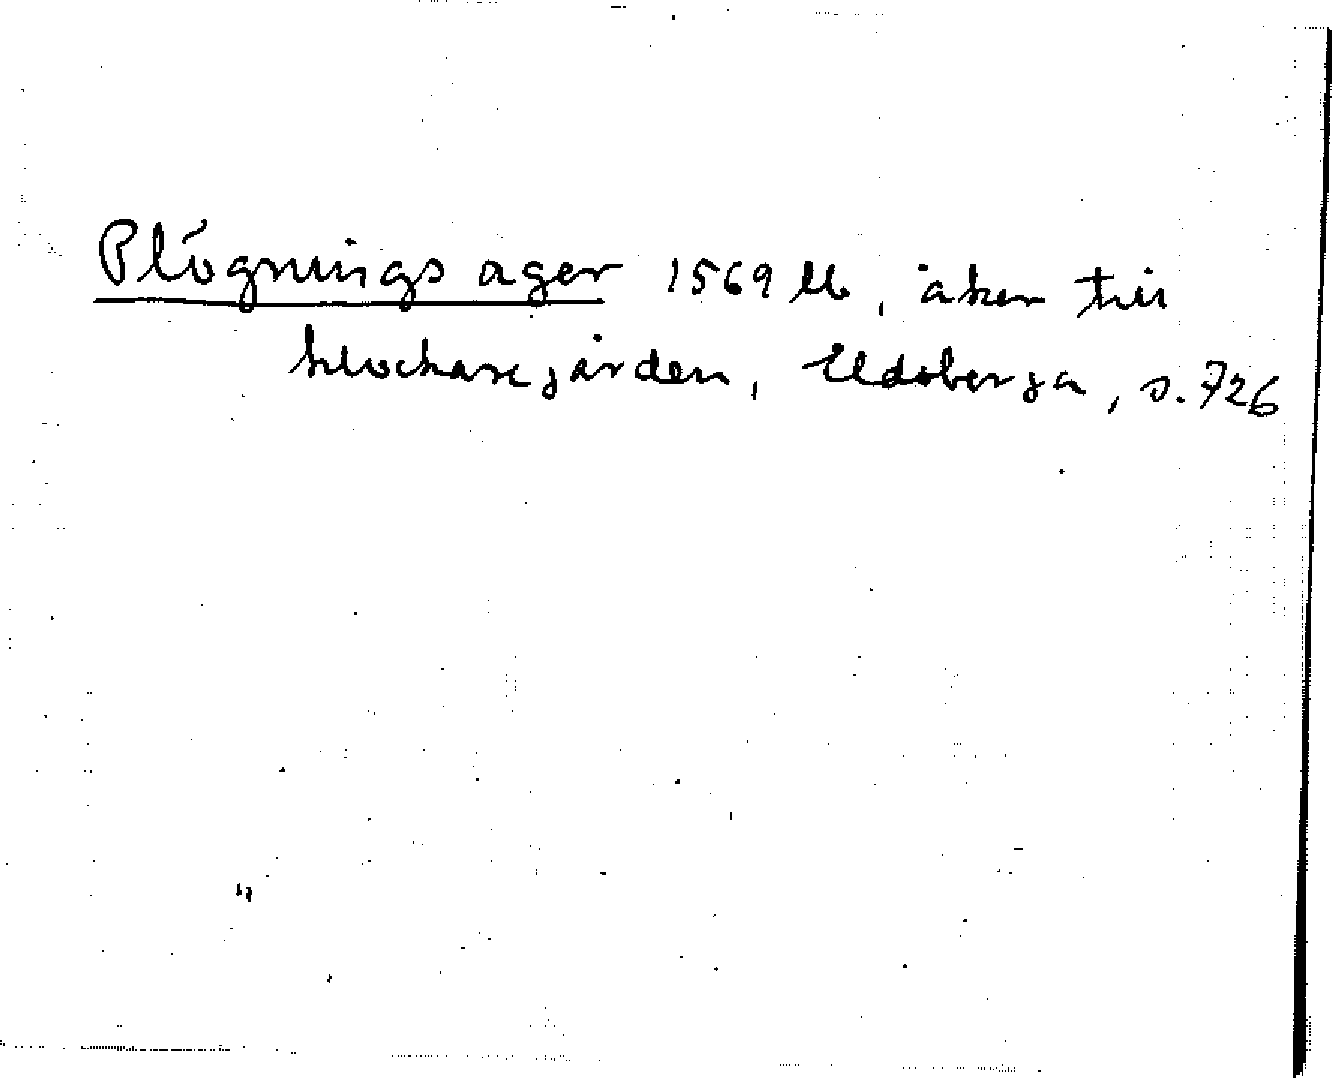 Plögnings ager 1569 lb, åker till
klockaregården, Eldsberga, s. 726